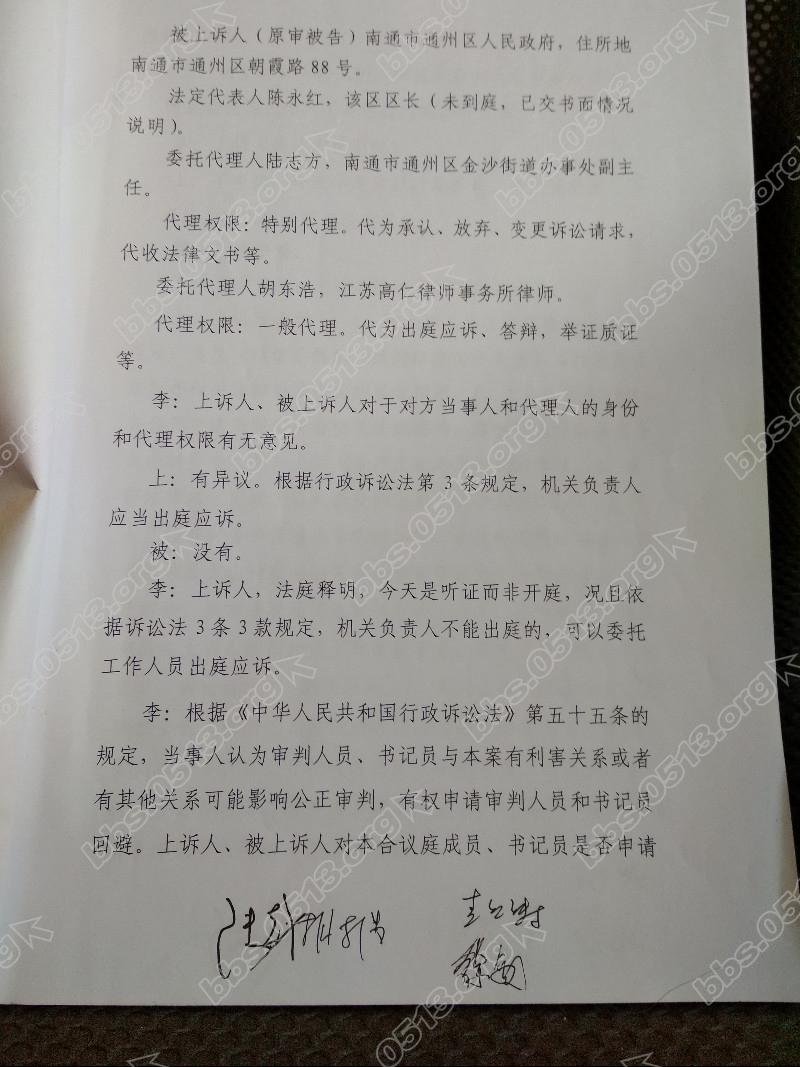 被上诉人（原审被告）南通市通州区人民政府，住所地
南通市通州区朝霞路 88 号。
法定代表人陈永红，该区区长（未到庭，已交书面情况
说明）。
委托代理人陆志方，南通市通州区金沙街道办事处副主
任。
代理权限：特别代理。代为承认、放弃、变更诉讼请求，
代收法律文书等。
委托代理人胡东浩，江苏高仁律师事务所律师。
代理权限：一般代理。代为出庭应诉、答辩，举证质证
等。
李：上诉人、被上诉人对于对方当事人和代理人的身份
和代理权限有无意见。
上：有异议。根据行政诉讼法第 3 条规定，机关负责人
应当出庭应诉。
被：没有。
李：上诉人，法庭释明，今天是听证而非开庭，况且依
据诉讼法 3 条 3 款规定，机关负责人不能出庭的，可以委托
工作人员出庭应诉。
李：根据《中华人民共和国行政诉讼法》第五十五条的
规定，当事人认为审判人员、书记员与本案有利害关系或者
有其他关系可能影响公正审判，有权申请审判人员和书记员
回避。上诉人、被上诉人对本合议庭成员、书记员是否申请
bbs.0513.org